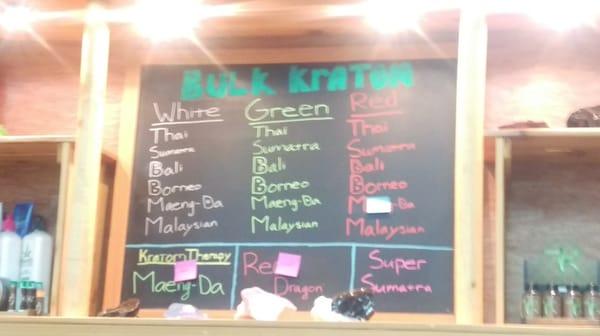 BULK KRATOM
White
Thai
Sumatra
Bali
Borneo
Maeng-Da
Malaysian
Green
Thai
Sumatra
Bali
Borneo
Maeng-Da
Malaysian
Red
Thai
Sumatra
Bali
Borneo
Malaysian
Kratom Therapy
Maeng-Da
Dragon
Super
Sumatra